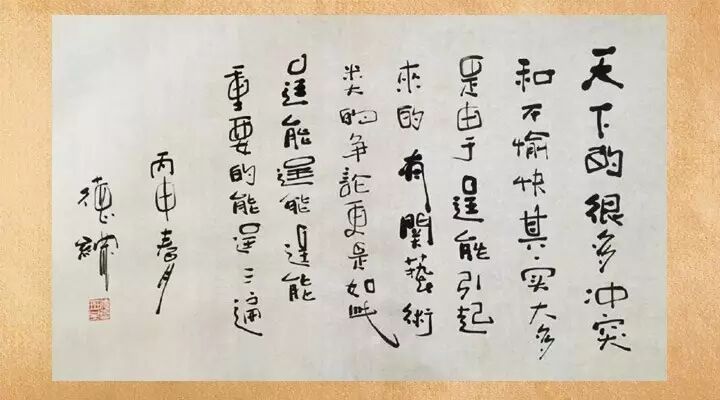 天下的很多冲突
和不愉快其实大多
是由于逞能引起
来的有關藝術
类的争論更是如此
逞能逞能逞能
重要的能逞三遍
丙申春月
德